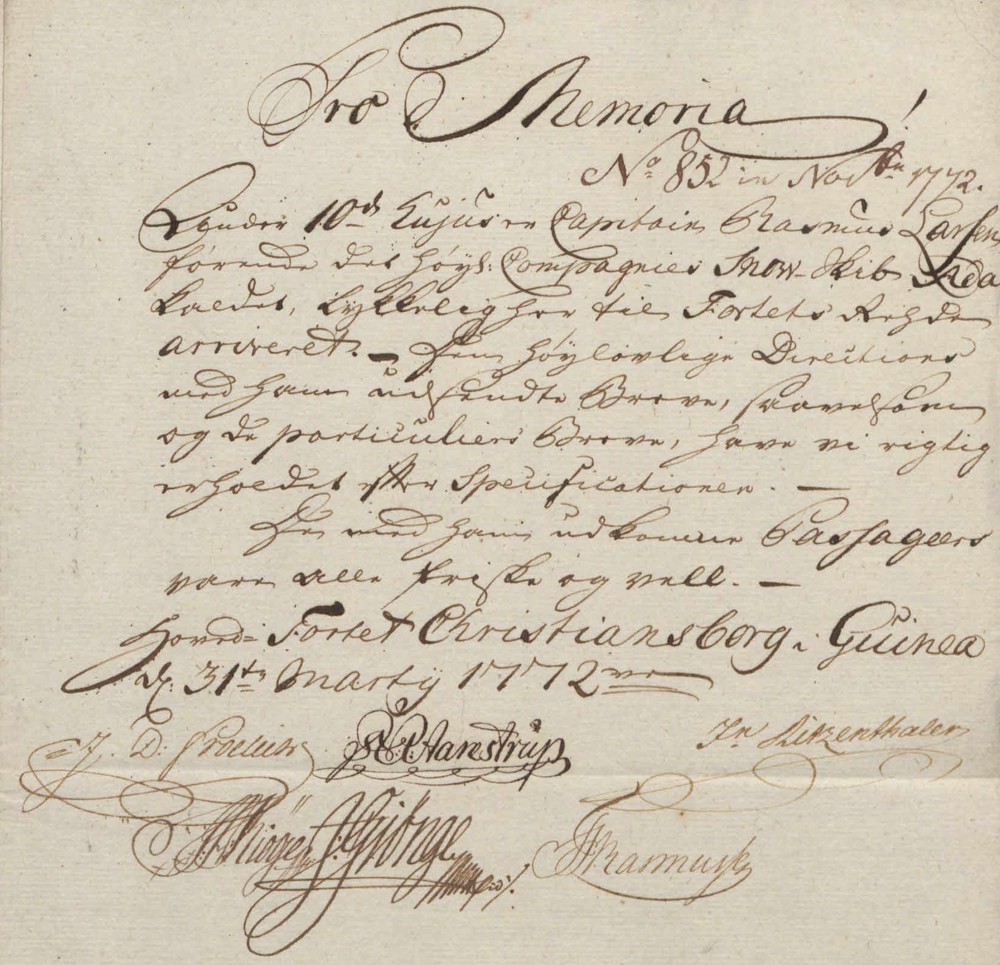 Pro Memoria!
No 852 in Novbr 1772.
Under 10de hujus er Capitain Rasmus Larsen
førende det høyl: Compagnies Snow-Skib Ada
kaldet, lykkelig her til Fortets Rehde
arriveret. – Den høylovlige Directions
med ham udsendte Breve, saavelsom
og de particuliers Breve, have vi rigtig
erholdet efter Specificationen. –
De med ham udkomne Passageers
vare alle friske og vell. –
Hoved-Fortet Christiansborg i Guinea
d. 31te Martij 1772
J. D. Froelich
Aarestrup
Kiøge